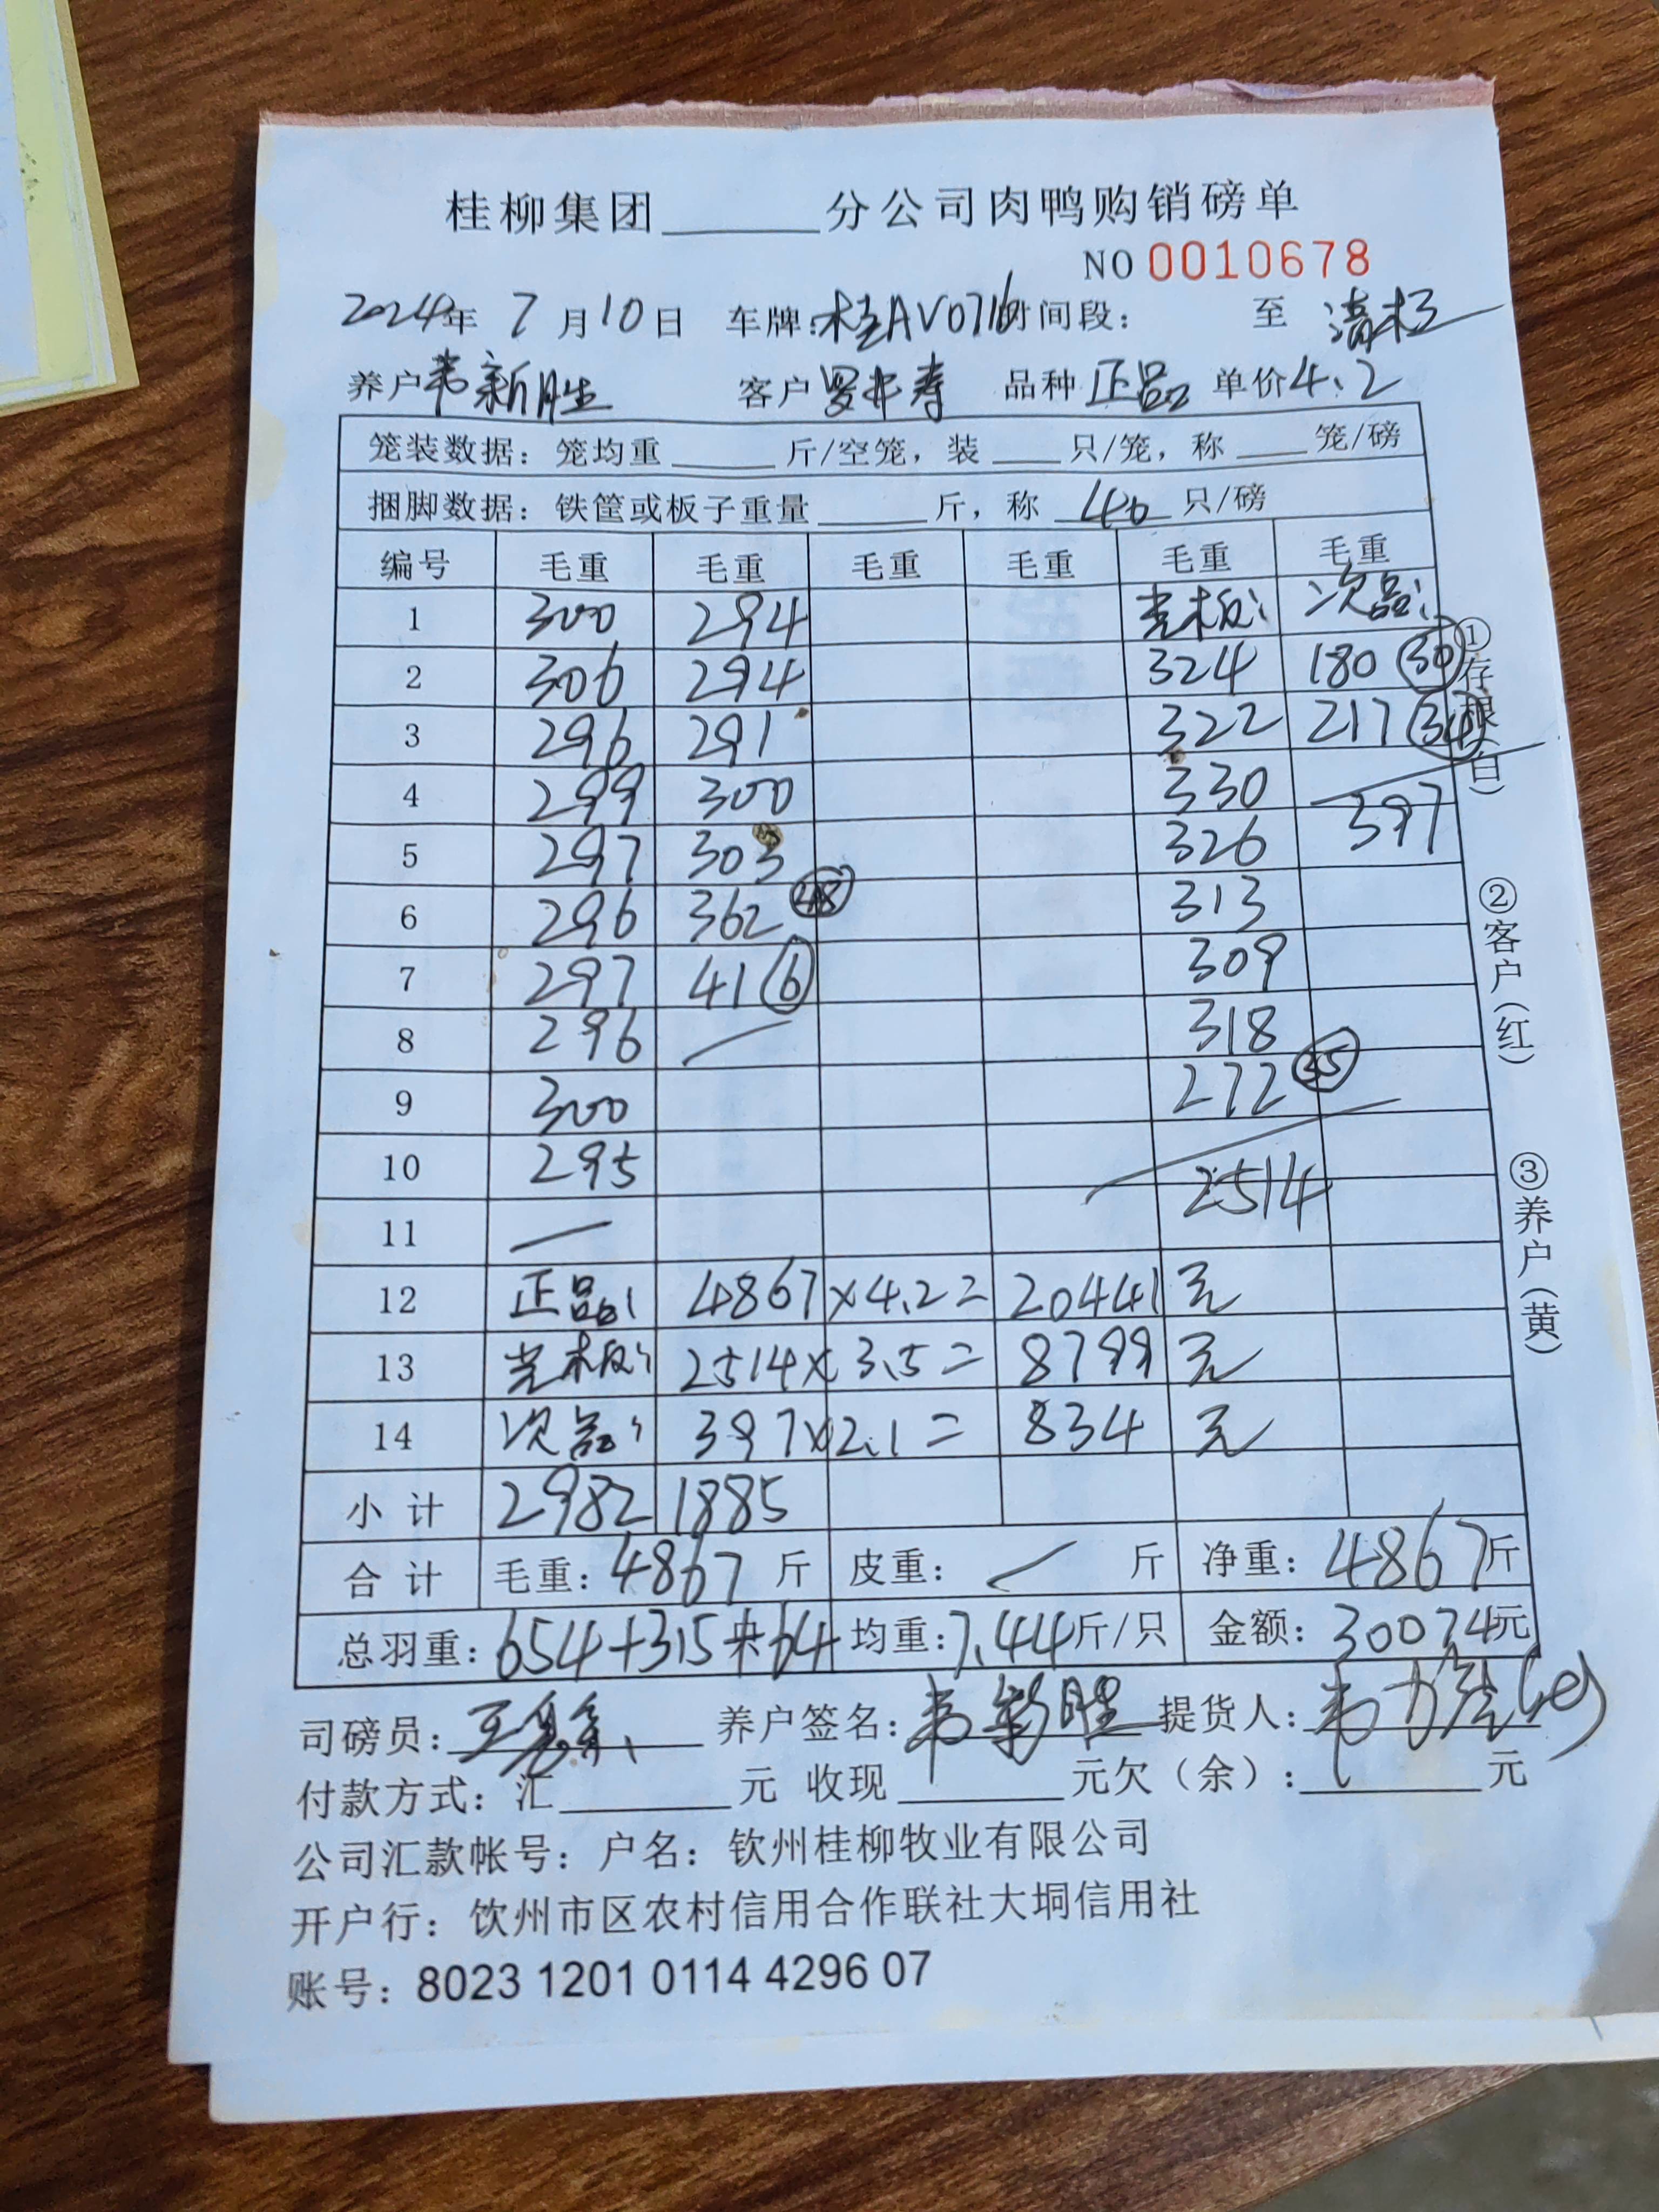 桂柳集团______分公司肉鸭购销磅单
NO 0010678
2024年 7月10日 车牌:桂AV0716 时间段: 至 清标
养户 韦新胜 客户 罗井寿 品种 正品 单价 4.2
笼装数据: 笼均重____斤/空笼, 装___只/笼, 称___笼/磅
捆脚数据: 铁筐或板子重量____斤, 称 40 只/磅
编号 毛重 毛重 毛重 毛重 毛重 毛重
1 300 294 光板: 次品:
2 306 294 324 180 (30)
3 296 291 322 217 (34)
4 299 300 330
5 297 303 326 397
6 296 362 (48) 313
7 297 41 (6) 309
8 296 318
9 300 272 (35)
10 295
11 2514
12 正品: 4867×4.2= 20441元
13 光板: 2514×3.5= 8799元
14 次品: 397×2.1= 834元
小计 2982 1885
合计 毛重: 4867斤 皮重: 斤 净重: 4867斤
总羽重: 654+315+64 均重: 7.44斤/只 金额: 30074元
司磅员: 养户签名: 韦新胜 提货人:
付款方式: 汇____元 收现____元欠(余):____元
公司汇款帐号: 户名: 钦州桂柳牧业有限公司
开户行: 饮州市区农村信用合作联社大垌信用社
账号: 8023 1201 0114 4296 07
①存根(白)
②客户(红)
③养户(黄)